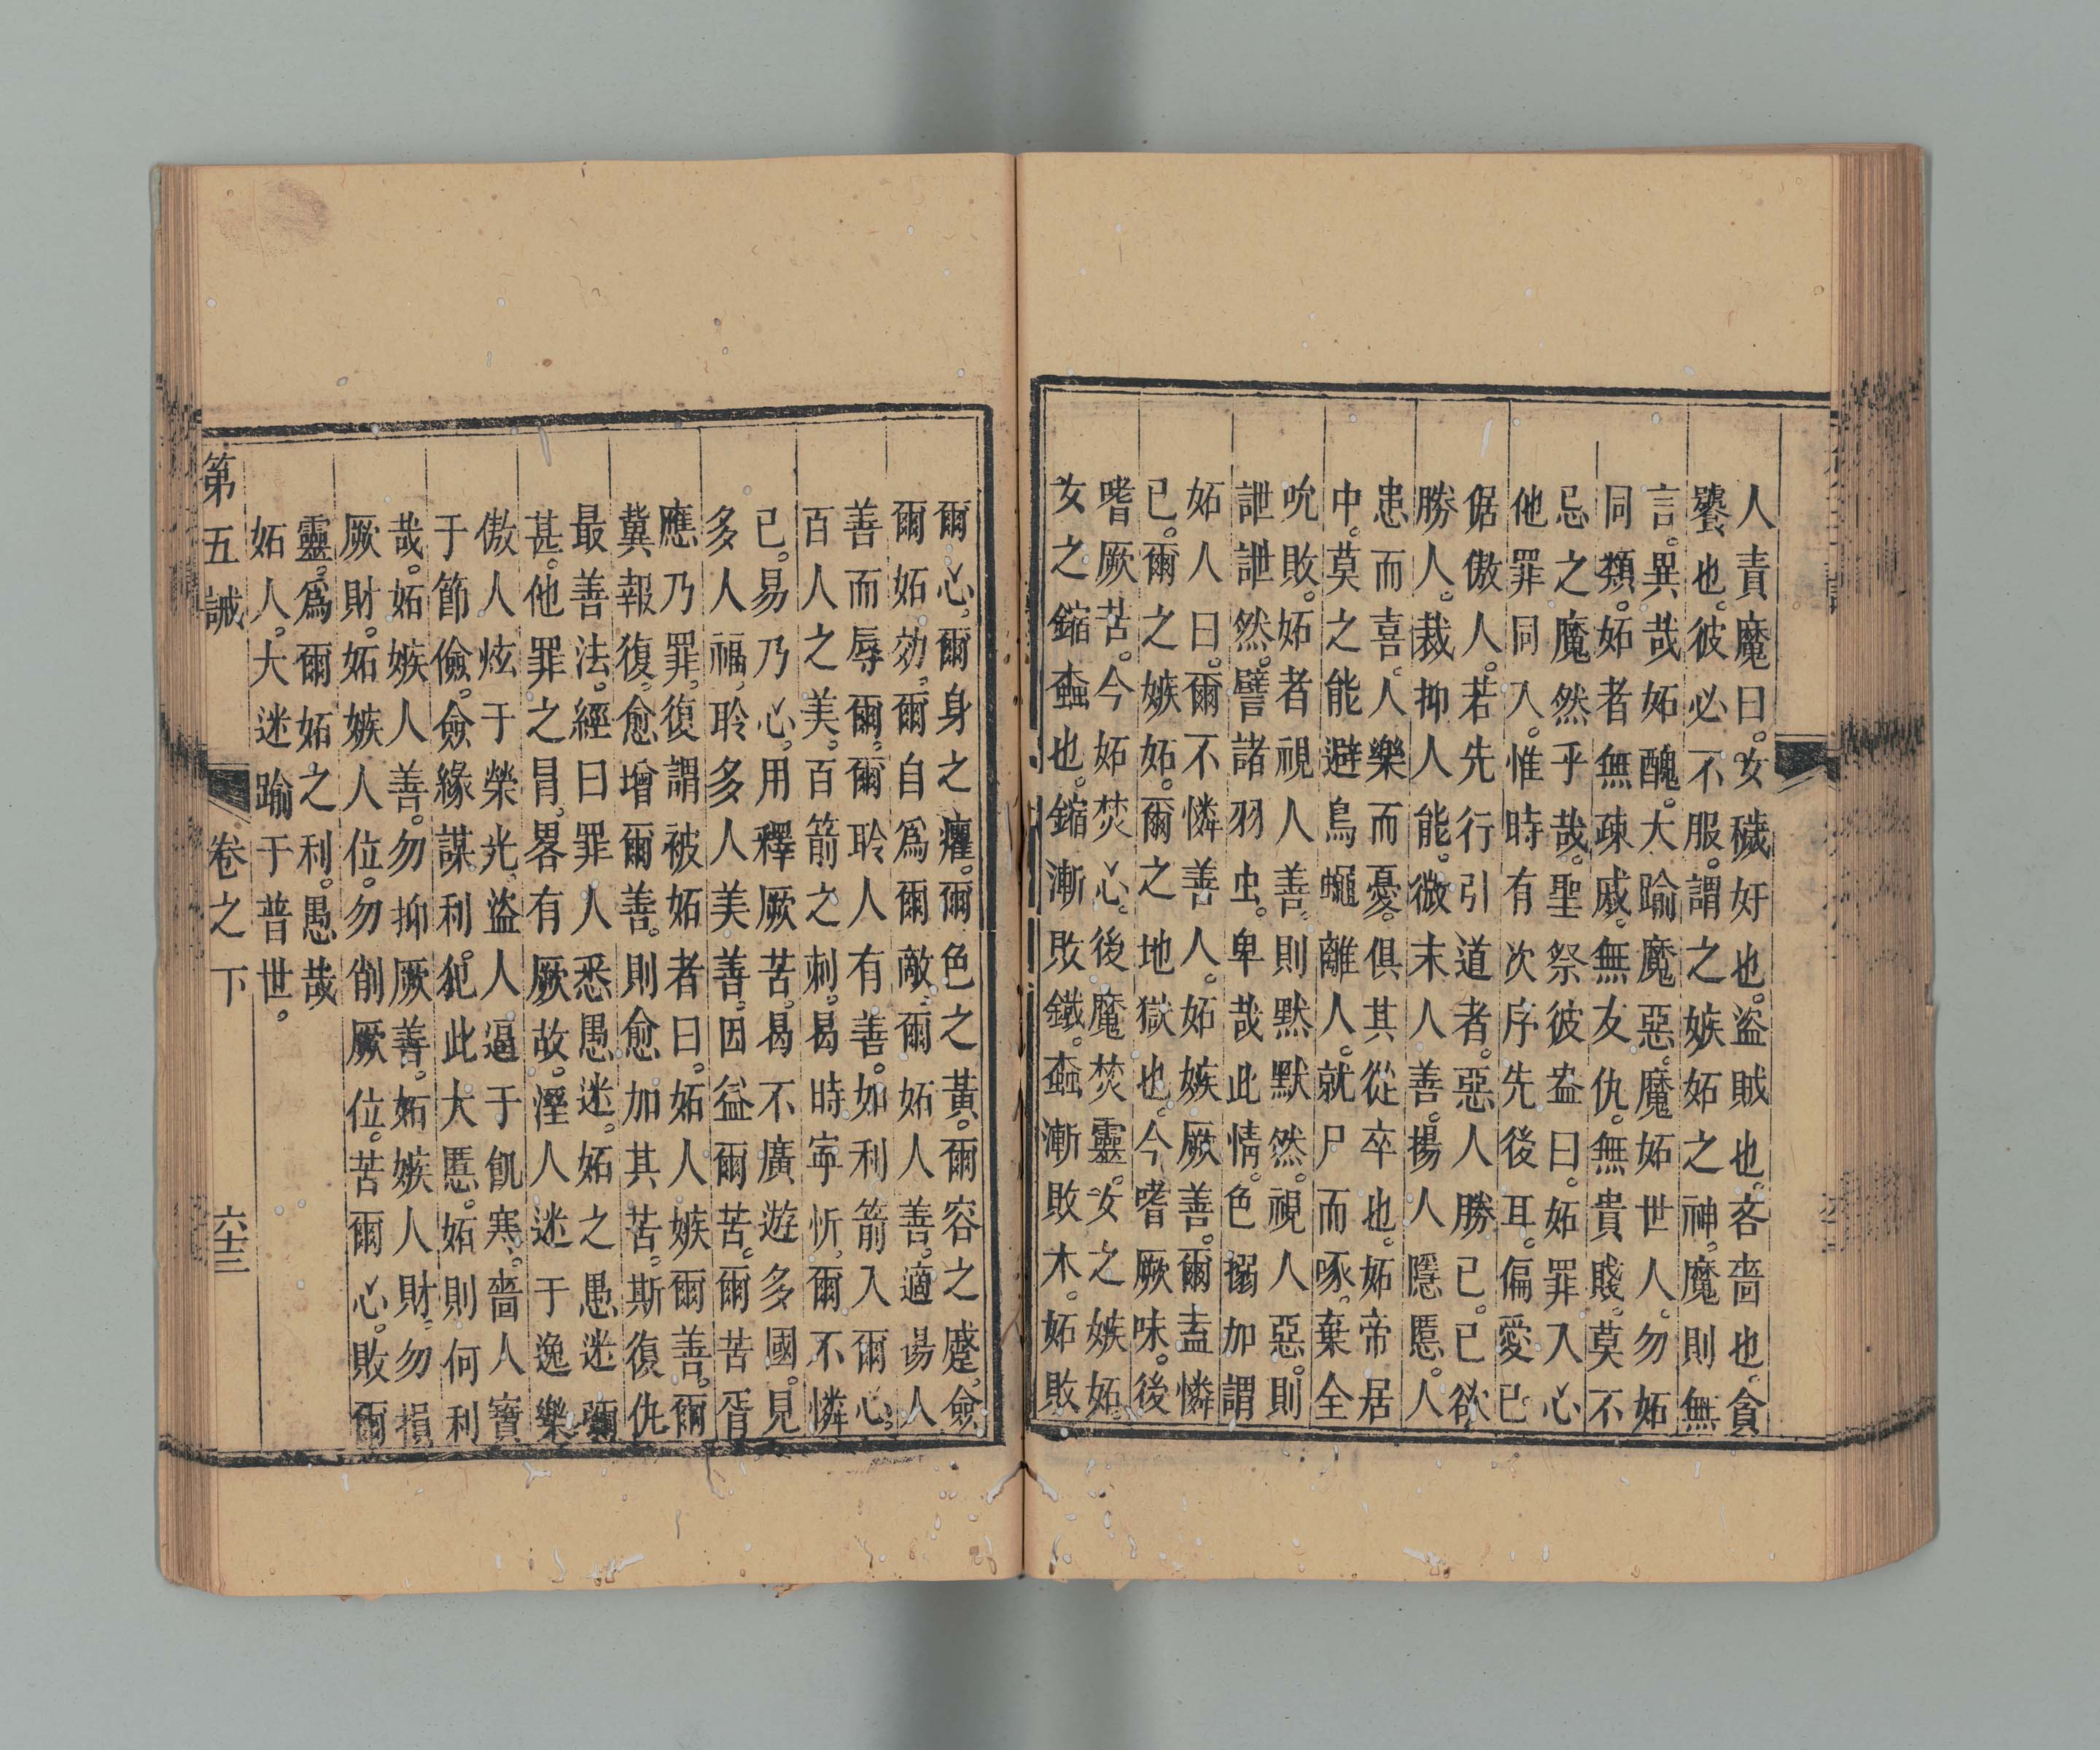 人責魔曰。女穢好也。盜賊也。吝嗇也。貪
饕也。彼必不服。謂之嫉妬之神。魔則無
言。異哉妬醜。大踰魔惡。魔妬世人。勿妬
同類。妬者無疎戚。無友仇。無貴賤。莫不
忌之魔然乎哉。聖祭彼盎曰。妬罪入心
他罪同入。惟時有次序先後耳。偏愛已
倨傲人。若先行引道者。惡人勝已。已欲
勝人。裁抑人能。微末人善。揚人隱慝。人
患而喜。人樂而憂。俱其從卒也。妬帝居
中。莫之能避鳥蠅離人。就尸而啄。棄全
吮敗。妬者視人善。則默默然。視人惡。則
詍詍然。譬諸羽虫。卑哉此情。色搦加謂
妬人曰。爾不憐善人。妬嫉厥善。爾盍憐
已。爾之嫉妬。爾之地獄也。今嗜厥味。後
嗜厥苦。今妬焚心。後魔焚靈。女之嫉妬。
女之鏥蝕也。鏥漸敗鐵。蝕漸敗木。妬敗
爾心。爾身之癯。爾色之黃。爾容之蹙。僉
爾妬効。爾自爲爾敵。爾妬人善。適揚人
善而辱爾。爾聆人有善。如利箭入爾心。
百人之美。百箭之刺。曷時寧忻。爾不憐
已。易乃心。用釋厥苦。曷不廣遊多國。見
多人福。聆多人美善。因益爾苦。爾苦胥
應乃罪。復謂被妬者曰。妬人嫉爾善。爾
冀報復。愈增爾善。則愈加其苦。斯復仇
最善法。經曰罪人悉愚迷。妬之愚迷彌
甚。他罪之冐。畧有厥故。淫人迷于逸樂
傲人炫于榮光。盜人逼于飢寒。嗇人寶
于節儉。僉緣謀利。犯此大慝。妬則何利
哉。妬嫉人善。勿抑厥善。妬嫉人財。勿損
厥財。妬嫉人位。勿削厥位。苦爾心。敗爾
靈。爲爾妬之利。愚哉
妬人。大迷踰于普世。
第五誡
卷之下
六十三